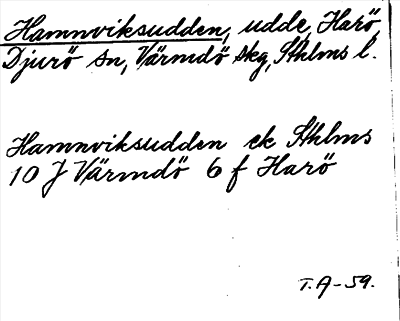 Hamnviksudden, udde, Harö,
Djurö sn, Värmdö skg, Sthlms l.
Hamnviksudden ek Sthlms
10 J Värmdö 6 f Harö
T.A-59.